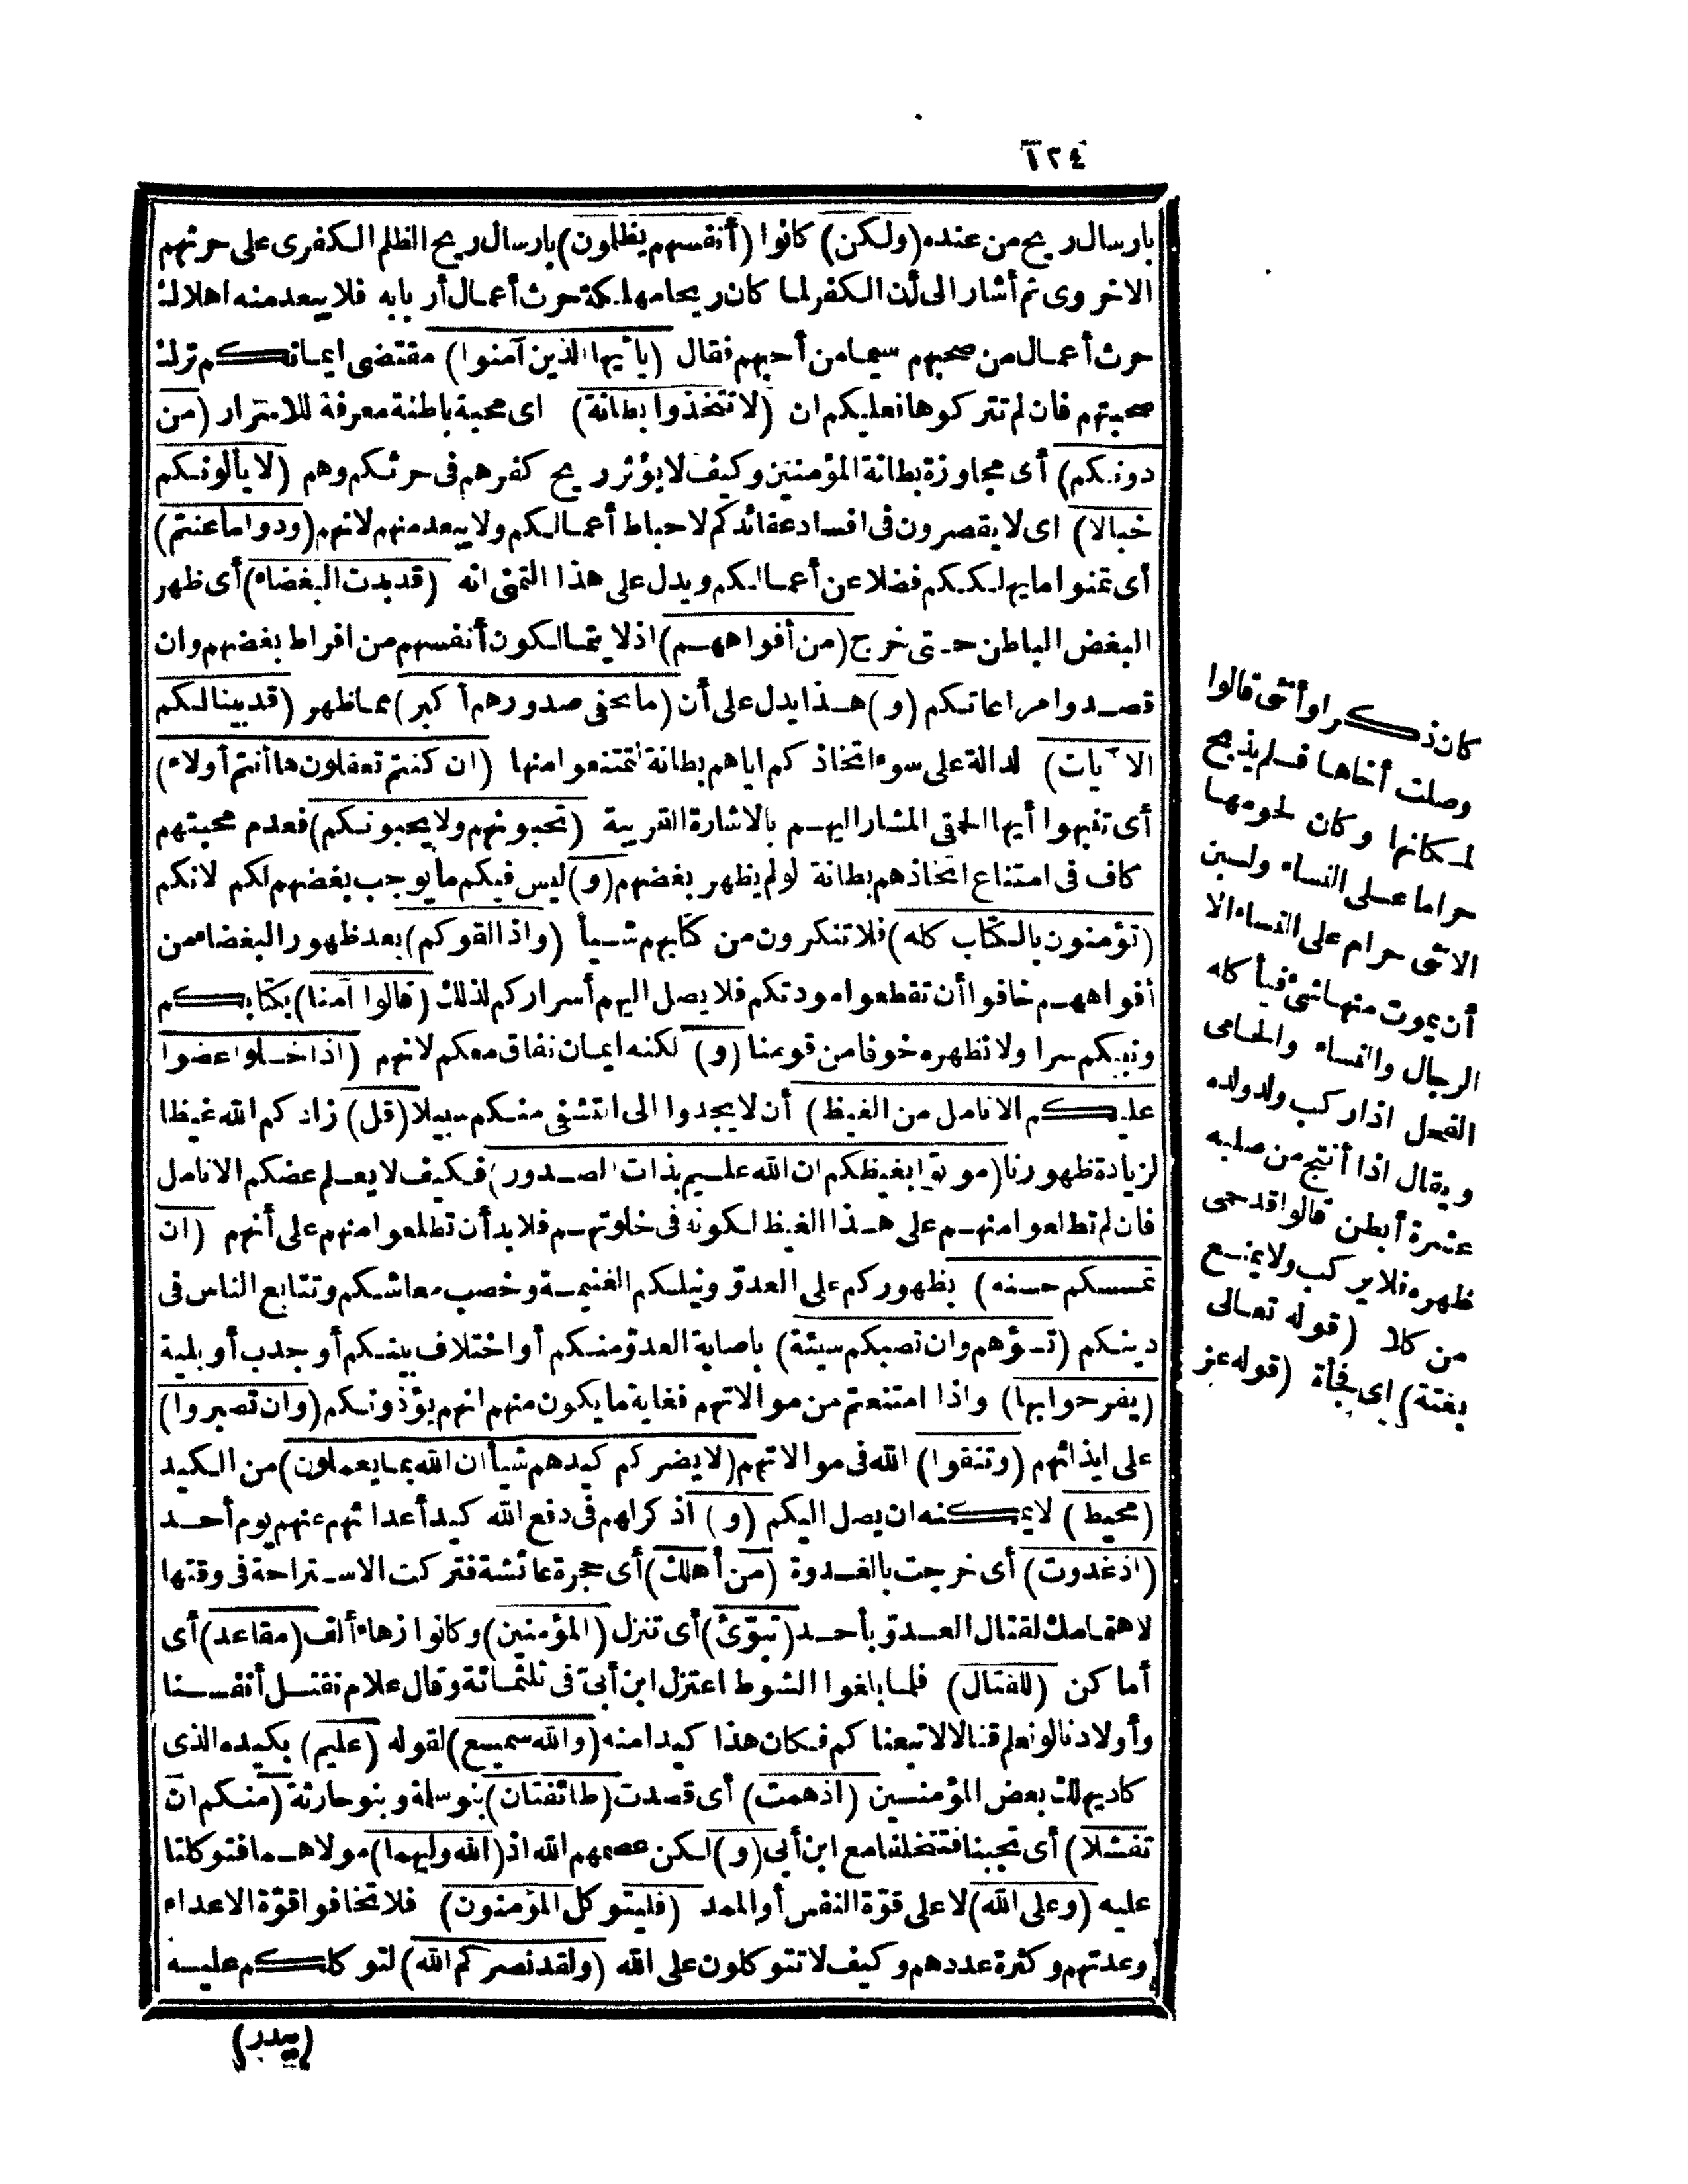 ١٢٤
بارسال ريح من عنده (ولكن) كانوا (أنفسهم يظلمون) بارسال ريح الظلم الكفرى على حرثهم
الاخروى ثم أشار الى أن الكفر لما كان ريحا مهلكة حرث أعمال أربابه فلا يبعد منه اهلاك
حرث أعمال من صحبهم سيما من أحبهم فقال (يا أيها الذين آمنوا) مقتضى ايمانكم ترك
صحبتهم فان لم تتركوها فعليكم ان (لا تتخذوا بطانة) اى محبة باطنة معرفة للاسرار (من
دونكم) أى مجاوزة بطانة المؤمنين وكيف لا يؤثر ريح كفرهم فى حرثكم وهم (لا يألونكم
خبالا) اى لا يقصرون فى افساد عقائدكم لاحباط أعمالكم ولا يبعد منهم لانهم (ودوا ما عنتم)
أى تمنوا ما يهلككم فضلا عن أعمالكم ويدل على هذا التمنى انه (قد بدت البغضاء) أى ظهر
البغض الباطن حتى خرج (من أفواههم) اذ لا يتمالكون أنفسهم من افراط بغضهم وان
قصدوا مراعاتكم (و) هذا يدل على أن (ما تخفى صدورهم أكبر) مما ظهر (قد بينا لكم
الآيات) لدالة على سوء اتخاذكم اياهم بطانة لتمتنعوا منها (ان كنتم تعقلون ها أنتم أولاء)
أى تنبهوا أيها الحمقى المشار اليهم بالاشارة القريبة (تحبونهم ولا يحبونكم) فعدم محبتهم
كاف فى امتناع اتخاذهم بطانة لو لم يظهر بغضهم (و) ليس فيكم ما يوجب بغضهم لكم لانكم
(تؤمنون بالكتاب كله) فلا تنكرون من كتابهم شيأ (واذا لقوكم) بعد ظهور البغضاء من
أفواههم خافوا أن تقطعوا مودتكم فلا يصل اليهم أسراركم لذلك (قالوا آمنا) بكتابكم
ونبيكم سرا ولا نظهره خوفا من قومنا (و) لكنه ايمان نفاق معكم لانهم (اذا خلوا عضوا
عليكم الانامل من الغيظ) أن لا يجدوا الى التشفى منكم سبيلا (قل) زادكم الله غيظا
لزيادة ظهورنا (موتوا بغيظكم ان الله عليم بذات الصدور) فكيف لا يعلم عضكم الانامل
فان لم تطلعوا منهم على هذا الغيظ لكونه فى خلوتهم فلا بد أن تطلعوا منهم على أنهم (ان
تمسسكم حسنه) بظهوركم على العدو ونيلكم الغنيمة وخصب معاشكم وتتابع الناس فى
دينكم (تسؤهم وان تصبكم سيئة) باصابة العدو منكم أو اختلاف بينكم أو جدب أو بلية
(يفرحوا بها) واذا امتنعتم من موالاتهم فغاية ما يكون منهم انهم يؤذونكم (وان تصبروا)
على ايذائهم (وتتقوا) الله فى موالاتهم (لا يضركم كيدهم شيأ ان الله بما يعملون) من الكيد
(محيط) لا يمكنه ان يصل اليكم (و) اذكر لهم فى دفع الله كيد أعدائهم عنهم يوم أحد
(اذ غدوت) أى خرجت بالغدوة (من أهلك) أى حجرة عائشة فتركت الاستراحة فى وقتها
لاهتمامك لقتال العدو بأحد (تبوّئ) أى تنزل (المؤمنين) وكانوا زهاء ألف (مقاعد) أى
أماكن (للقتال) فلما بلغوا الشوط اعتزل ابن أبىّ فى ثلثمائة وقال علام نقتل أنفسنا
وأولادنا لو نعلم قتالا لاتبعناكم فكان هذا كيدا منه (والله سميع) لقوله (عليم) بكيده الذى
كاد يهلك بعض المؤمنين (اذ همت) أى قصدت (طائفتان) بنو سلمة وبنو حارثة (منكم ان
تفشلا) أى تجبنا فتتخلفا مع ابن أبى (و) لكن عصمهم الله اذ (الله وليهما) مولاهما فتوكلتا
عليه (وعلى الله) لا على قوّة النفس أو المدد (فليتوكل المؤمنون) فلا تخافوا قوّة الاعداء
وعدتهم وكثرة عددهم وكيف لا تتوكلون على الله (ولقد نصركم الله) لتوكلكم عليه
(ببدر)
كان ذكرا وأنثى قالوا
وصلت أخاها فلم يذبح
لمكانها وكان لحومها
حراما على النساء ولبن
الانثى حرام على النساء الا
أن يموت منها شئ فيأكله
الرجال والنساء والحامى
الفحل اذا ركب ولد ولده
ويقال اذا أنتج من صلبه
عشرة أبطن قالوا قد حمى
ظهره فلا يركب ولا يمنع
من كلأ (قوله تعالى
بغتة) اى فجأة (قوله عز